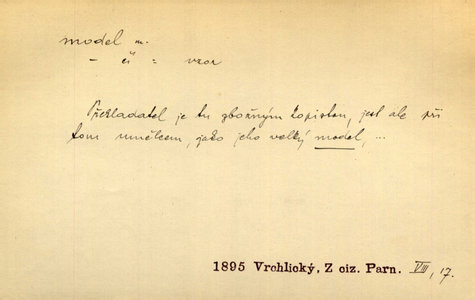 model m.
– čí = vzor
Překladatel je tu zbožným kopistou, jest ale při
tom umělcem, jako jeho velký model, ...
1895 Vrchlický, Z ciz. Parn. VIII, 17.